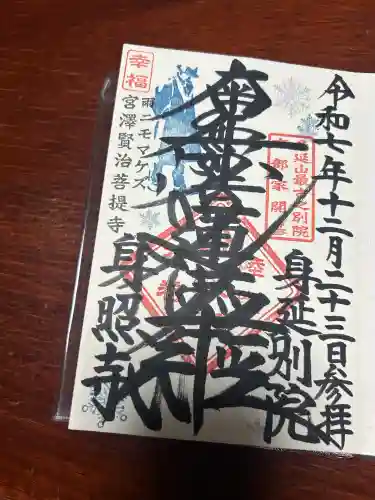 令和七年十二月二十三日参拝
身延別院
延山最古之別院
南無妙法蓮華経
雨ニモマケズ
宮澤賢治菩提寺
身照寺
幸福